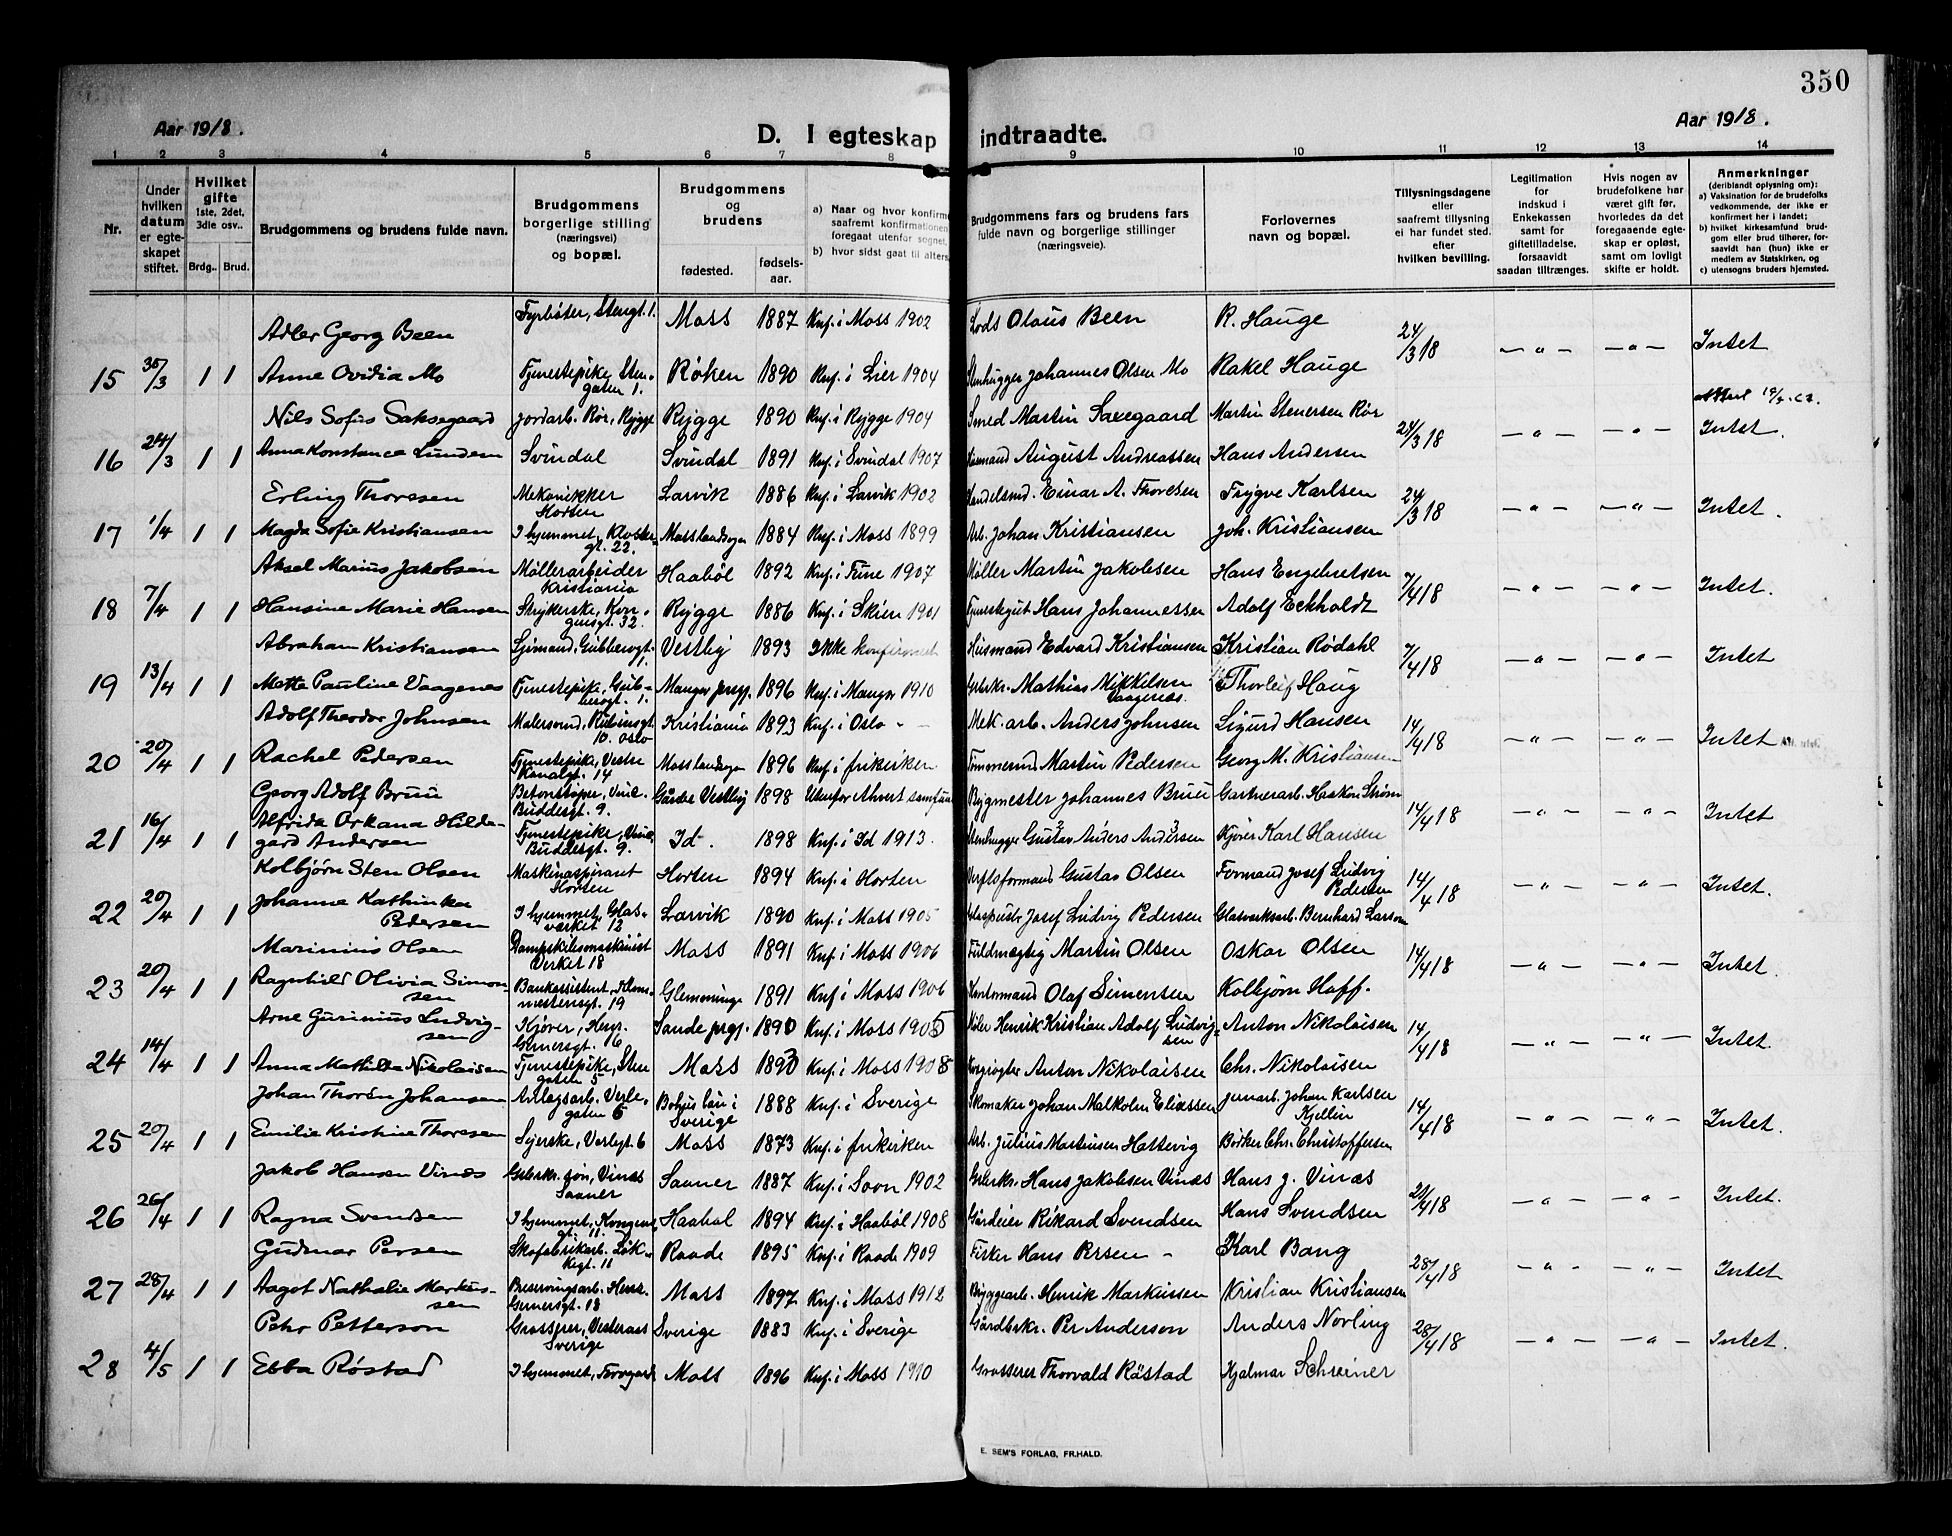 350
Aar 1918.
D. I egteskap indtraadte.
Aar 1918.
1 2 3 4 5 6 7 8 9 10 11 12 13 14
Nr.
Under hvilken datum er egteskapet stiftet.
Hvilket gifte 1ste, 2det, 3die osv..
Brdg.. Brud.
Brudgommens og brudens fulde navn.
Brudgommens borgerlige stilling (næringsvei) og bopæl.
Brudgommens og brudens
fødested.
fødselsaar.
a) Naar og hvor konfirm
saafremt konfirmationen
foregaat utenfor sognet,
b) hvor sidst gaat til alters.
Brudgommens fars og brudens fars fulde navn og borgerlige stillinger (næringsveie).
Forlovernes navn og bopæl.
Tillysningsdagene eller saafremt tillysning ei har fundet sted. efter hvilken bevilling.
Legitimation for indskud i Enkekassen samt for giftetilladelse, forsaavidt saadan tiltrænges.
Hvis nogen av brudefolkene har været gift før, hvorledes da det foregaaende egteskap er opløst, samt om lovligt skifte er holdt.
Anmerkninger
(deriblandt oplysning om):
a) Vaksination for de brudefolks vedkommende, der ikke er konfirmert her i landet;
b) hvilket kirkesamfund brudgom eller brud tilhører, forsaavidt han (hun) ikke er medlem av Statskirken, og
c) utensogns bruders hjemsted.
Adler Georg Been Fyrbøter, Stengt. 1. Moss 1887 Knf. i Moss 1902 Lods Olaus Been R. Hauge 24/3 18 — „ — — „ — Intet
15 30/3 1 1 Anne Ovidia Mo Tjenestepike, Stengaten 1. Røken 1890 Knf. i Lier 1904 Stenhugger Johannes Olsen Mo Rakel Hauge
Nils Sofus Saksegaard Jordarb. Rør, Rygge Rygge 1890 Knf. i Rygge 1904 Smed Martin Saxegaard Martin Stenersen Rør 24/3 18 — „ — — „ — Intet.
16 24/3 1 1 Anna Konstance Lunden Svindal Svindal 1891 Knf. i Svindal 1907 August Andreassen Hans Andersen
Erling Thoresen Mekanikker Horten Larvik 1886 Knf. i Larvik 1902 Handelsmd. Einar A. Thoresen Trygve Karlsen 24/3 18 — „ — — „ — Intet.
17 1/4 1 1 Magda Sofie Kristiansen I hjemmet, Klostergt. 22. Mosslandsogn 1884 Knf. i Moss 1899 Arb. Johan Kristiansen Joh. Kristiansen
Aksel Marius Jakobsen Møllerarbeider Kristiania Haabøl 1892 Knf. i Tune 1907 Møller Martin Jakobsen Hans Engebretsen 7/4 18 — „ — — „ — Intet.
18 7/4 1 1 Hansine Marie Hansen Strykerske, Kongensgt. 32. Rygge 1886 Knf. i Skien 1901 Hans Johannessen Adolf Eckholdt
Abraham Kristiansen Sjømand, Gubberogt. 1. Vestby 1893 Ikke konfirmert Husmand Edvard Kristiansen Kristian Rødahl 7/4 18 — „ — — „ — Intet
19 13/4 1 1 Mette Pauline Vaagenes Tjenestepike, Gubberogt. 1. Manger prgj. 1896 Knf. i Manger 1910 Gbrkr. Mathias Mikkelsen Vaagenæs. Thorleif Haug
Adolf Theodor Johnsen Malersvend, Rubinsgt. 10. Oslo Kristiania 1893 Knf. i Oslo - - Mek. arb. Anders Johnsen Sigurd Hansen 14/4 18 — „ — — „ — Intet
20 20/4 1 1 Rachel Pedersen Tjenestepike, Vestre Kanalgt. 14 Mosslandsogn 1896 Knf. i frikirken Tømmermd Martin Pedersen Georg M. Kristiansen
Georg Adolf Bruu Betonstøper, Vinc. Buddesgt. 9. Garder Vestby 1898 Utenfor ethvert samfund Bygmester Johannes Bruu Gartnerarb. Haakon Strøm 14/4 18 — „ — — „ — Intet
21 16/4 1 1 Alfrida Orkana Hildegard Andersen Tjenestepike, Vinc. Buddesgt. 9. Id. 1898 Knf. i Id 1913. Stenhugger Gustav Anders Andersen Kjører Karl Hansen
Kolbjørn Sten Olsen Maskinaspirant Horten Horten 1894 Knf. i Horten Verftsformand Gustav Olsen Formand Josef Ludvig Pedersen 14/4 18 — „ — — „ — Intet.
22 20/4 1 1 Johanne Kathinka Pedersen I hjemmet, Glasverket 12 Larvik 1890 Knf. i Moss 1905 Glaspuster Josef Ludvig Pedersen Glasverksarb. Bernhard Larsen
Marinius Olsen Dampskibsmaskinist Verket 18 Moss 1891 Knf. i Moss 1906 Fuldmægtig Martin Olsen Oskar Olsen 14/4 18 — „ — — „ — Intet.
23 20/4 1 1 Ragnhild Olivia Simonsen Bankassistent, Klommestensgt. 19 Glemminge 1891 Knf i Moss 1906 Olaf Simensen Kolbjørn Hoff.
Arne Gurinius Ludvigsen Kjører, Henr. Gernersgt. 16 Sande prgj. 1890 Knf. i Moss 1905 Møler Henrik Kristian Adolf Ludvigsen Anton Nikolaisen 14/4 18 — „ — — „ — Intet.
24 14/4 1 1 Anna Mathilde Nikolaisen Tjenestepike, Stengaten 5 Moss 1893 Knf. i Moss 1908 Anton Nikolaisen Chr. Nikolaisen
Johan Thorén Johansen Anlægsarb. Verlegaten 6 Bohus län i Sverige 1888 Knf. i Sverige Skomaker Johan Malkolm Eliassen Jernarb. Johan Karlsen Kjellin 14/4 18 — „ — — „ — Intet.
25 20/4 1 1 Emilie Kristine Thoresen Syerske, Verlegt. 6 Moss 1873 Knf. i frikirken Arb. Julius Martinsen Hattevig Bødker Chr. Christoffersen
Jakob Hansen Vinæs Gbrkr. søn, Vinæs Saaner Saaner 1887 Knf. i Sovn 1902 Gbrkr. Hans Jakobsen Vinæs Hans J. Vinæs 21/4 18 — „ — — „ — Intet.
26 26/4 1 1 Ragna Svendsen I hjemmet, Kongensgt. 11. Haabøl 1894 Knf. i Haabøl 1908 Gårdeier Rikard Svendsen Hans Svendsen
Gudmar Persen Skofabrikarb. Løkkegt. 11 Raade 1895 Knf. i Raade 1909 Fisker Hans Persen - Karl Bang 28/4 18 — „ — — „ — Intet
27 28/4 1 1 Aagot Nathalie Markussen Henr. Gernersgt. 18 Moss 1897 Knf. i Moss 1912 Bryggearb. Henrik Markussen Kristian Kristiansen
Pehr Petterson Grosserer, Vesteraas Sverige Sverige 1883 Knf. i Sverige Gårdbrkr. Per Anderson Anders Norling 28/4 18 — „ — — „ — Intet.
28 4/5 1 1 Ebba Røstad I hjemmet, Moss 1896 Knf. i Moss 1910 Grosserer Thorvald Røstad Hjalmar Schreiner
E. SEM'S FORLAG, FR.HALD.